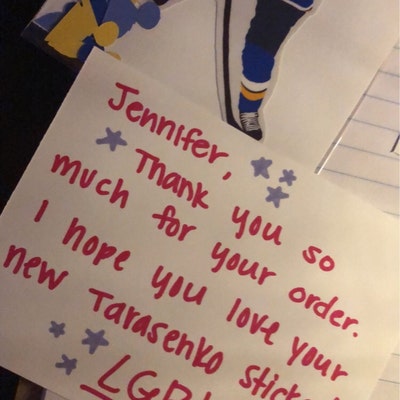 Jennifer,
Thank you so
much for your order.
I hope you love your
new Tarasenko